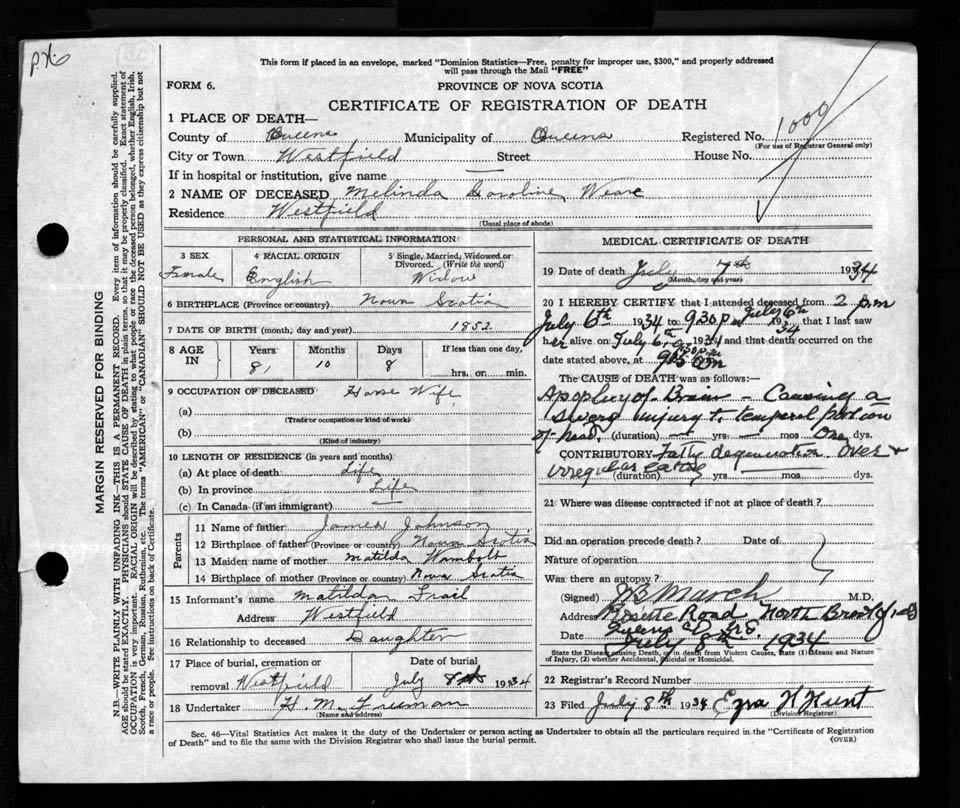 This form if placed in an envelope, marked "Dominion Statistics—Free, penalty for improper use, $300," and properly addressed
will pass through the Mail "FREE"
FORM 6.
PROVINCE OF NOVA SCOTIA
CERTIFICATE OF REGISTRATION OF DEATH
1 PLACE OF DEATH—
County of Queens Municipality of Queens Registered No. 1009
(For use of Registrar General only)
City or Town Westfield Street House No.
If in hospital or institution, give name —
2 NAME OF DECEASED Melinda Caroline Weare
Residence Westfield
(Usual place of abode)
PERSONAL AND STATISTICAL INFORMATION
3 SEX 4 RACIAL ORIGIN 5 Single, Married, Widowed or Divorced. (Write the word)
Female English Widow
6 BIRTHPLACE (Province or country) Nova Scotia
7 DATE OF BIRTH (month, day and year) 1852
8 AGE IN Years Months Days If less than one day,
81 10 8 hrs. or min.
9 OCCUPATION OF DECEASED House Wife
(a)
(Trade or occupation or kind of work)
(b)
(Kind of industry)
10 LENGTH OF RESIDENCE (in years and months)
(a) At place of death Life
(b) In province Life
(c) In Canada (if an immigrant) —
Parents
11 Name of father James Johnson
12 Birthplace of father (Province or country) Nova Scotia
13 Maiden name of mother Matilda Wambolt
14 Birthplace of mother (Province or country) Nova Scotia
15 Informant's name Matilda Frail
Address Westfield
16 Relationship to deceased Daughter
17 Place of burial, cremation or Date of burial
removal Westfield July 8th 1934
18 Undertaker H. M. Freeman
(Name and address)
MEDICAL CERTIFICATE OF DEATH
19 Date of death July 7th 1934
(Month, day and year)
20 I HEREBY CERTIFY that I attended deceased from 2 p.m
July 6th 1934 to 930 pm July 6th 1934 that I last saw
her alive on July 6th 1934 and that death occurred on the
date stated above, at
The CAUSE OF DEATH was as follows:—
Apoplexy of Brain — Causing a
severe injury to temporal portion
of head. (duration) — yrs. — mos. One dys.
CONTRIBUTORY Fatty degeneration over &
irregular eating (duration) yrs. mos. dys.
21 Where was disease contracted if not at place of death?
Did an operation precede death? Date of
Nature of operation
Was there an autopsy?
(Signed) March M.D.
Address Road North Brookfield
Queens Co N.S.
Date July 8th 1934
State the Disease causing Death, or in death from Violent Causes, State (1) Means and Nature
of Injury, (2) whether Accidental, Suicidal or Homicidal.
22 Registrar's Record Number
23 Filed July 8th 1934 Ezra H Hunt
(Division Registrar)
Sec. 46—Vital Statistics Act makes it the duty of the Undertaker or person acting as Undertaker to obtain all the particulars required in the "Certificate of Registration
of Death" and to file the same with the Division Registrar who shall issue the burial permit. (OVER)
MARGIN RESERVED FOR BINDING
N.B.—WRITE PLAINLY WITH UNFADING INK—THIS IS A PERMANENT RECORD. Every item of information should be carefully supplied.
AGE should be stated EXACTLY. PHYSICIANS should STATE CAUSE OF DEATH in plain terms, so that it may be properly classified. Exact statement of
OCCUPATION is very important. RACIAL ORIGIN will be described by stating to what people or race the deceased person belonged, whether English, Irish,
Scotch, French, German, Russian, Ruthenian, etc. The terms "AMERICAN" or "CANADIAN" SHOULD NOT BE USED as they express citizenship but not
a race or people. See instructions on back of Certificate.